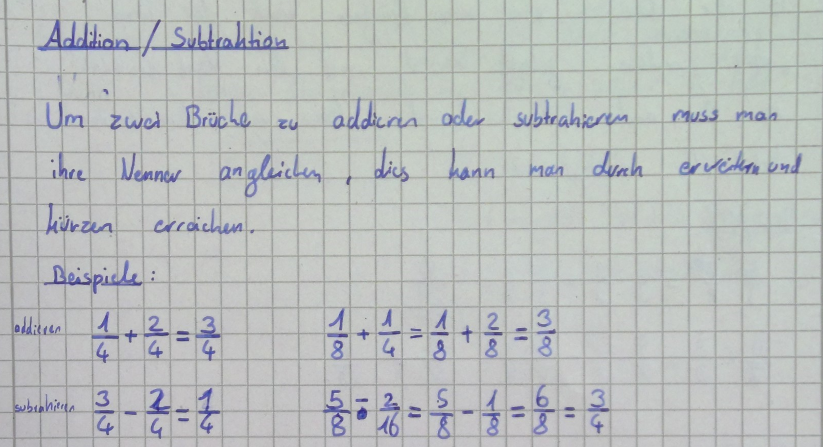 Addition / Subtraktion
Um zwei Brüche zu addieren oder subtrahieren muss man
ihre Nenner angleichen, dies kann man durch erweitern und
kürzen erreichen.
Beispiele:
addieren 1/4 + 2/4 = 3/4 1/8 + 1/4 = 1/8 + 2/8 = 3/8
subtrahieren 3/4 - 2/4 = 1/4 5/8 - 2/16 = 5/8 - 1/8 = 6/8 = 3/4